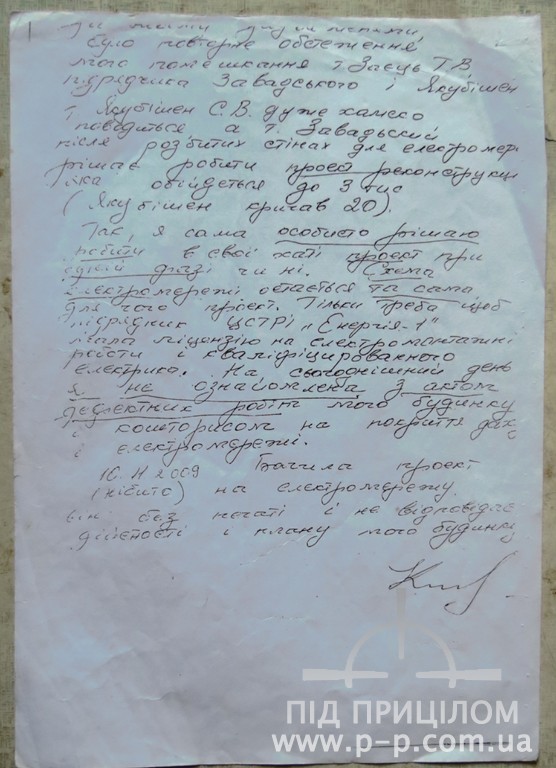 було повторне обстеження
мого помешкання т. Заєць Т.В,
підрядчика Завадського і Якубішен
т Якубішен С.В. дуже хамско
поводиться а т. Завадьский
після розбитих стінах для електромер
рішає робити проєкт реконструкци
яка обійдеться до 3 тис
(Якубішен кричав 20).
Так, я сама особисто рішаю
робити в своі хаті проєкт при
одній фазі чи ні. Схема
електромережі остається та сама
для чого проєкт. Тільки треба щоб
підрядник "Енергія-1"
мала ліцензію на електромонтажні
роботи і кваліфіцированного
електрико. На сьогоднішний день
я не ознайомлена з актом
дефектних робіт мого будинку
і кошторисом на покриття дах
і електромережі.
2009 Бачила проєкт
(нібито) на електромережу
він без печаті і не відповідає
дійсності і плану мого будинку
ПІД ПРИЦІЛОМ
www.p-p.com.ua